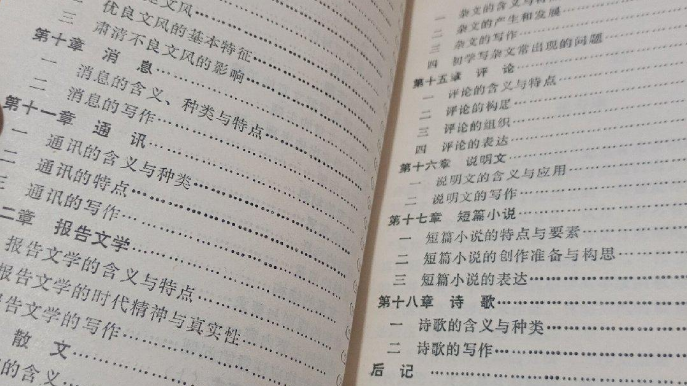 文风
二 优良文风的基本特征
三 肃清不良文风的影响
第十章 消 息
一 消息的含义、种类与特点
二 消息的写作
第十一章 通 讯
一 通讯的含义与种类
二 通讯的特点
三 通讯的写作
二章 报告文学
报告文学的含义与特点
报告文学的时代精神与真实性
报告文学的写作
散 文
的含义
一 杂文的含义与
二 杂文的产生和发展
三 杂文的写作
四 初学写杂文常出现的问题
第十五章 评 论
一 评论的含义与特点
二 评论的构思
三 评论的组织
四 评论的表达
第十六章 说明文
一 说明文的含义与应用
二 说明文的写作
第十七章 短篇小说
一 短篇小说的特点与要素
二 短篇小说的创作准备与构思
三 短篇小说的表达
第十八章 诗 歌
一 诗歌的含义与种类
二 诗歌的写作
后 记